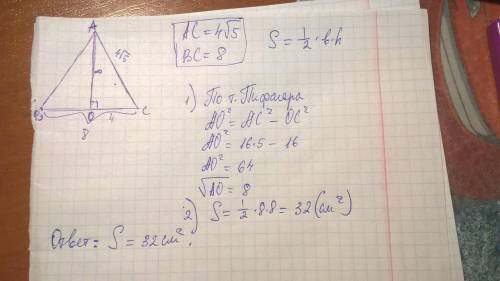 A
4√5
8
B
O
C
4
8
AC = 4√5
BC = 8
S = 1/2 · b · h
1) По т. Пифагора
AO² = AC² - OC²
AO² = 16·5 - 16
AO² = 64
√AO = 8
2) S = 1/2 · 8·8 = 32 (см²)
Ответ: S = 32 см².